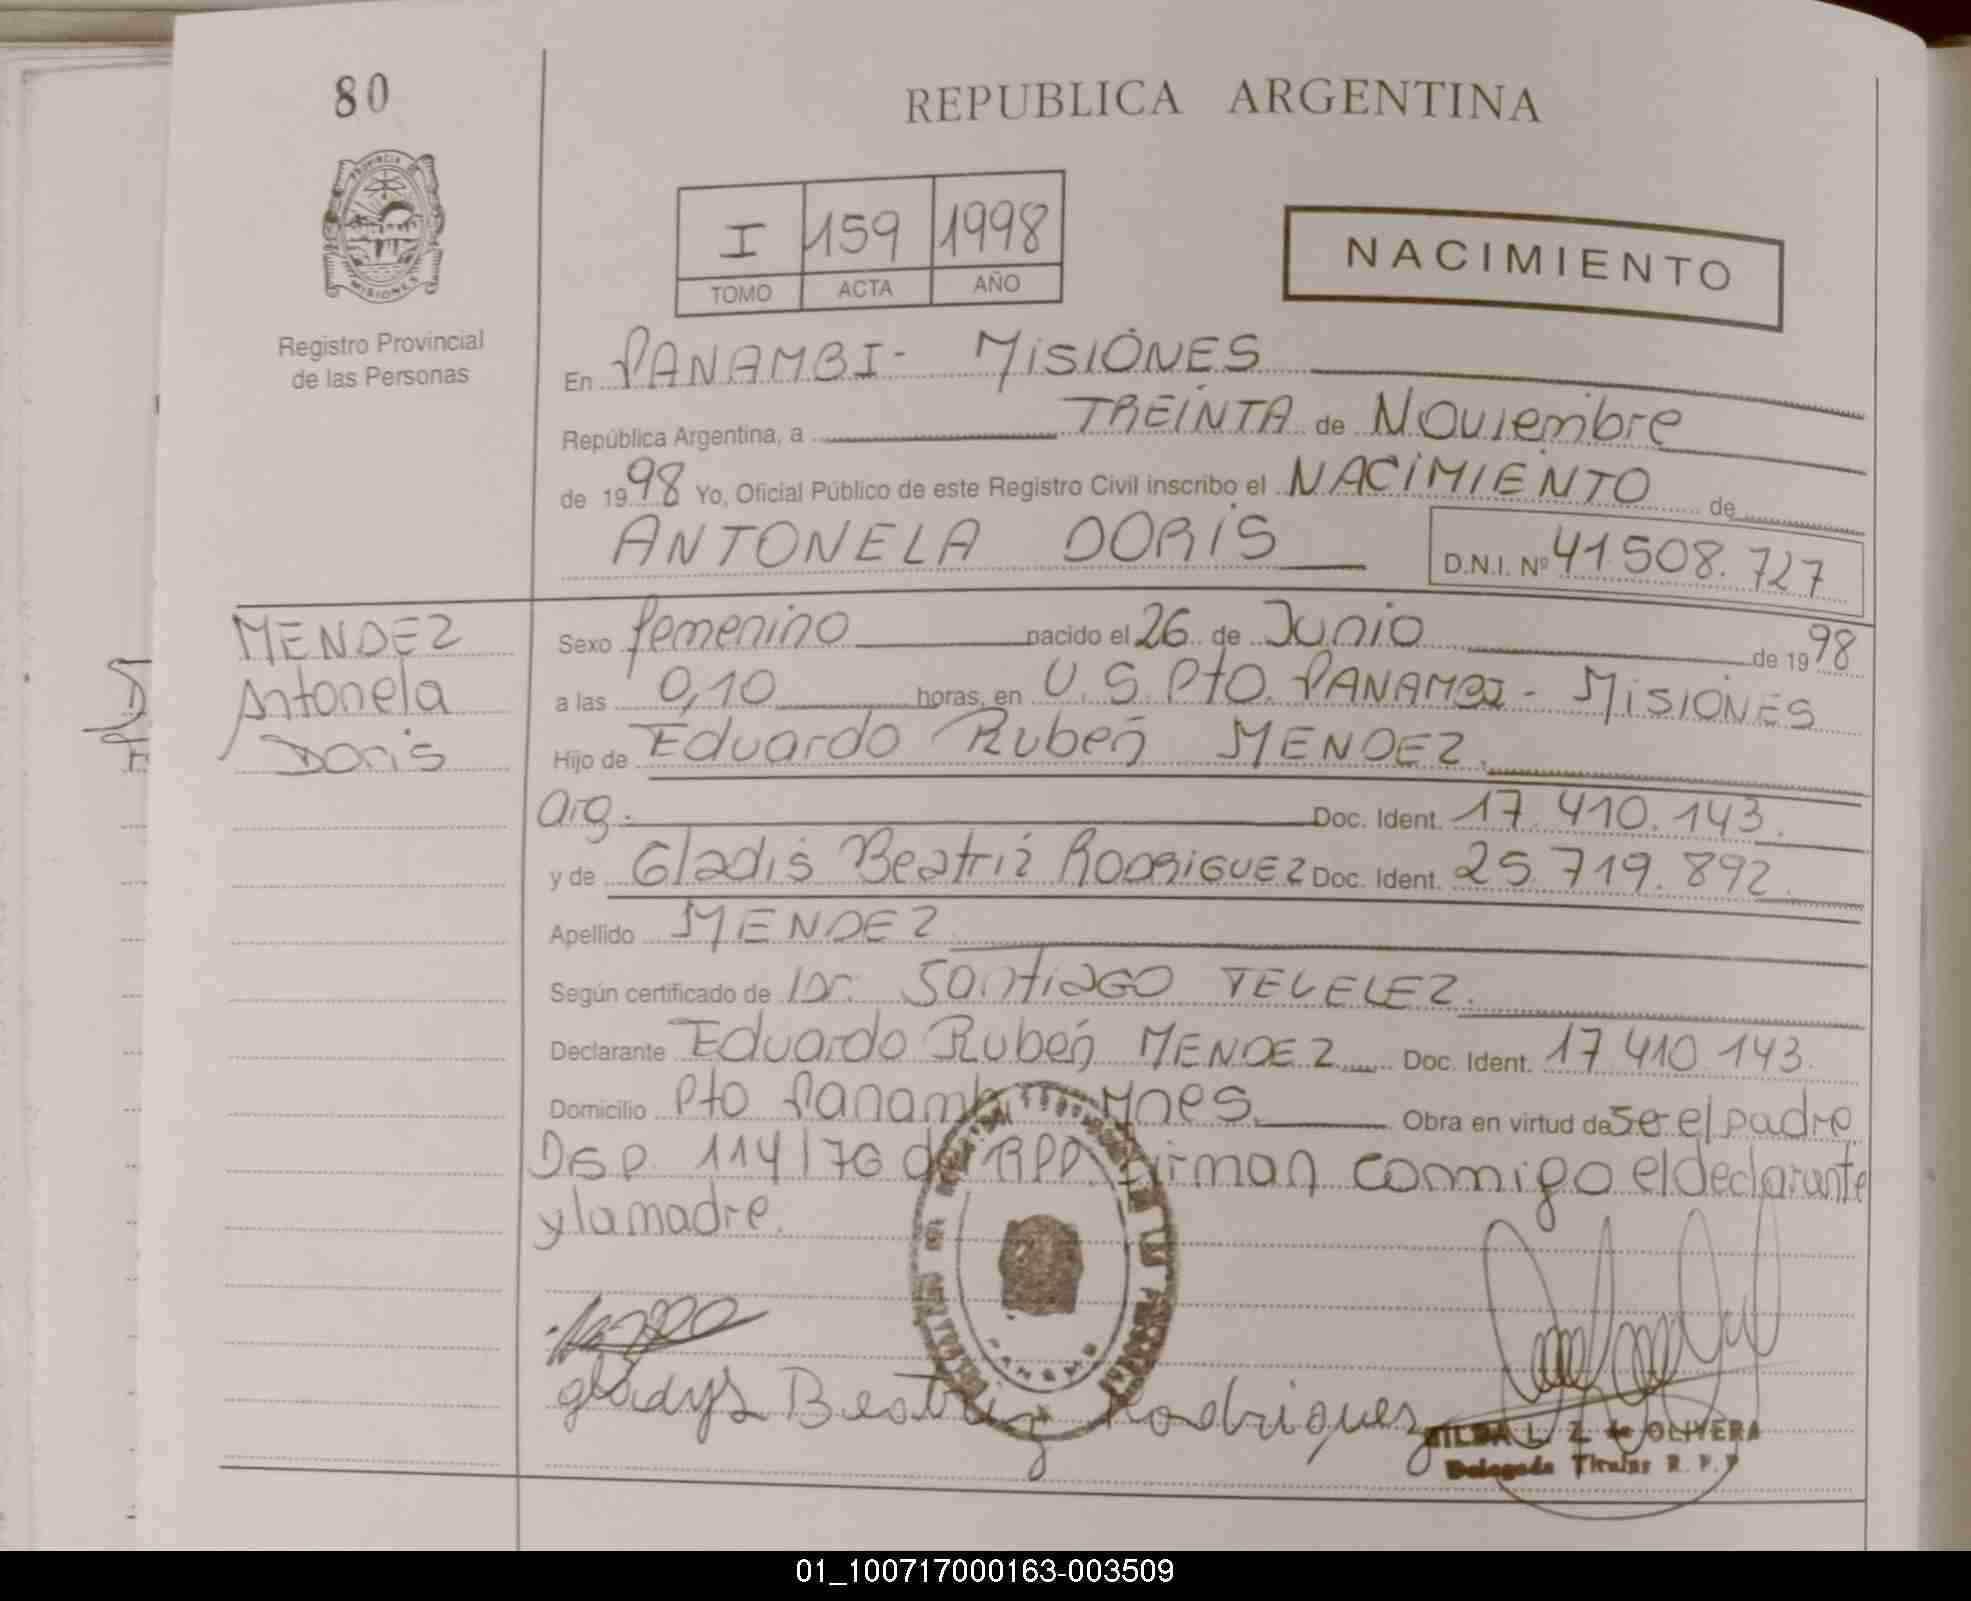 80
REPUBLICA ARGENTINA
PROVINCIA DE
MISIONES
I 159 1998
TOMO ACTA AÑO
NACIMIENTO
Registro Provincial
de las Personas
En PANAMBI - MISIONES
República Argentina, a TREINTA de Noviembre
de 1998 Yo, Oficial Público de este Registro Civil inscribo el NACIMIENTO de
ANTONELA DORIS D.N.I. Nº 41.508.727
MENDEZ
Antonela
Doris
Sexo femenino nacido el 26 de Junio de 1998
a las 0,10 horas, en U.S. Pto. PANAMBI - MISIONES
Hijo de Eduardo Rubén MENDEZ.
arg. Doc. Ident. 17.410.143.
y de Gladis Beatriz RODRIGUEZ Doc. Ident. 25.719.892.
Apellido MENDEZ
Según certificado de Dr. Santiago
Declarante Eduardo Rubén MENDEZ Doc. Ident. 17.410.143.
Domicilio Pto Panambi Mnes. Obra en virtud de Ser el padre
114/76 de RPP. Firman conmigo el declarante
y la madre.
gladys Beatriz Rodriguez
L. Z. de OLIVERA
Delegada Titular R. P. P.
01_100717000163-003509